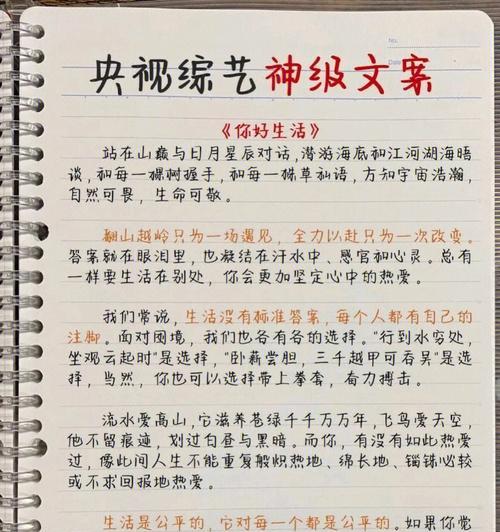 No:
Date:
央视综艺神级文案
《你好生活》
站在山巅与日月星辰对话,潜游海底和江河湖海晤
谈,和每一棵树握手,和每一株草耳语,方知宇宙浩瀚,
自然可畏,生命可敬。
翻山越岭只为一场遇见,全力以赴只为一次改变。
答案就在眼泪里,也凝结在汗水中、感官和心灵。总有
一样要生活在别处,你会更加坚定心中的热爱。
我们常说,生活没有标准答案,每个人都有自己的
注脚。面对困境,我们也各有各的选择。"行到水穷处,
坐观云起时"是选择,"卧薪尝胆,三千越甲可吞吴"是选
择,当然,你也可以选择带上拳套,奋力搏击。
流水爱高山,它滋养苍绿千千万万年,飞鸟爱天空,
他不留痕迹,划过白昼与黑暗。而你,有没有如此热爱
过,像此间人生不能重复般炽热地、绵长地、锱铢必较
或不求回报地热爱。
生活是公平的,它对每一个都是公平的。如果你觉